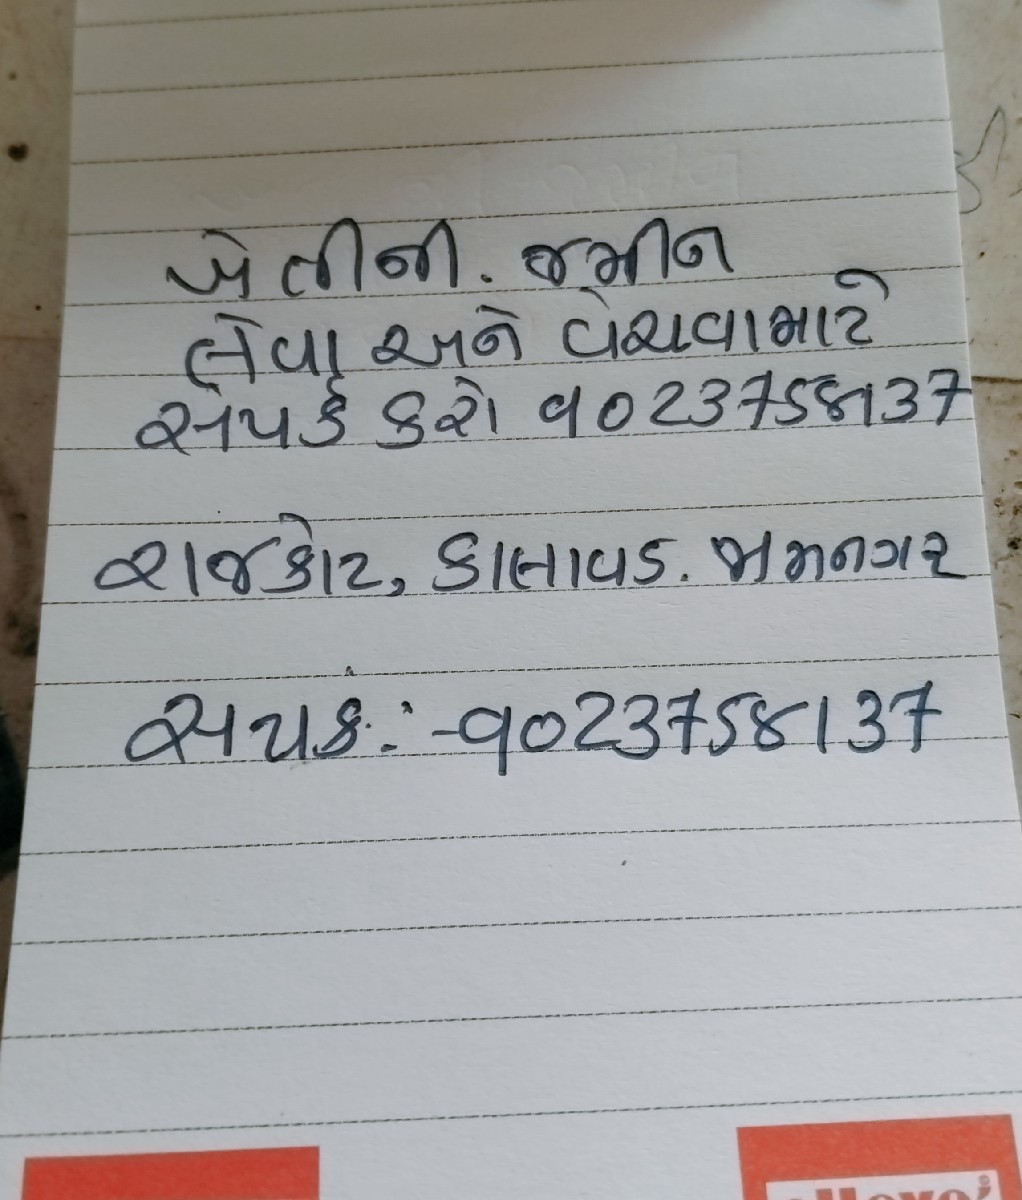 ખેતીની. જમીન
લેવા અને વેચવામાટે
સંપર્ક કરો 9023758137
રાજકોટ, કાલાવડ. જામનગર
સંપર્ક:-9023758137